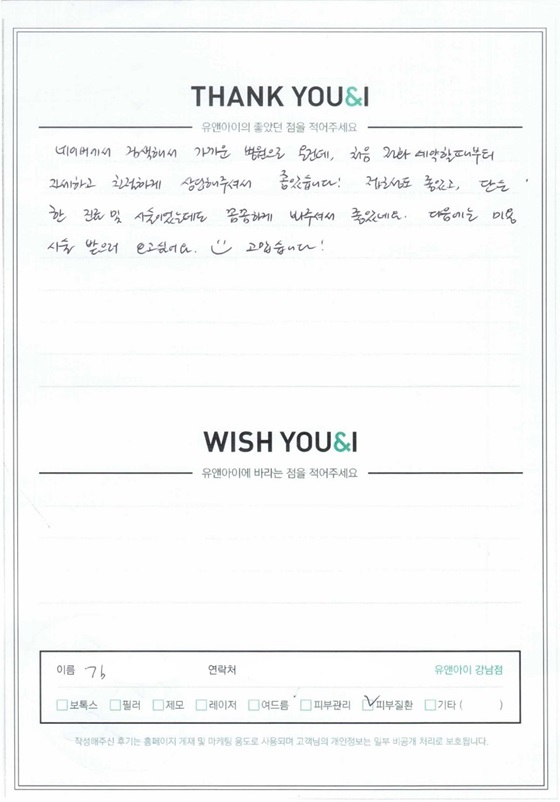 THANK YOU&I
유앤아이의 좋았던 점을 적어주세요
네이버에서 검색해서 가까운 병원으로 온건데, 처음 전화 예약할때부터
자세하고 친절하게 상담해주셔서 좋았습니다! 좋았고,
한 진료 및 시술이었는데도 꼼꼼하게 봐주셔서 좋았네요. 다음에는 미용
시술 받으러 오고싶어요. 고맙습니다!
WISH YOU&I
유앤아이에 바라는 점을 적어주세요
이름 연락처 유앤아이 강남점
보톡스 필러 제모 레이저 여드름 피부관리 피부질환 기타 ( )
작성해주신 후기는 홈페이지 게재 및 마케팅 용도로 사용되며 고객님의 개인정보는 일부 비공개 처리로 보호됩니다.